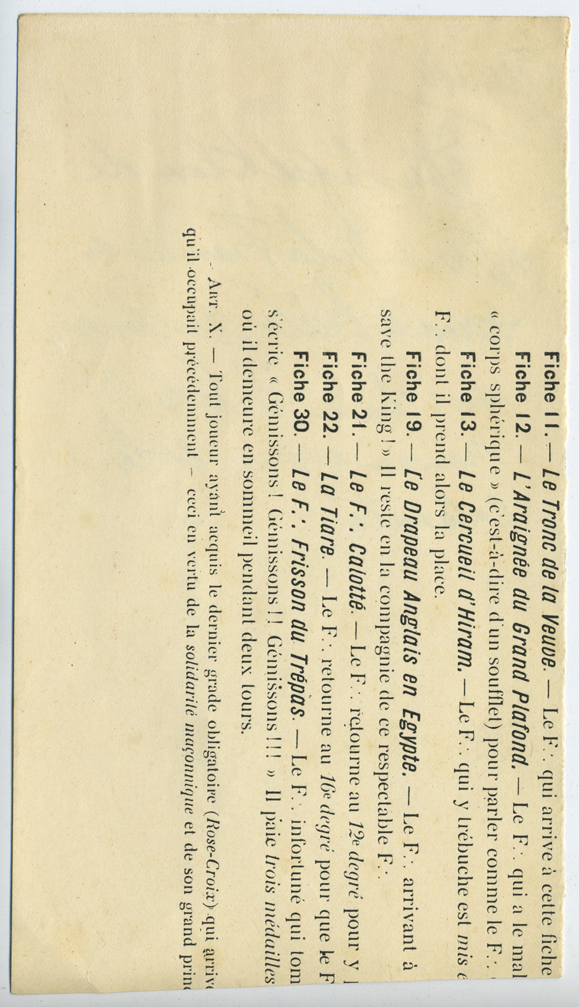 Fiche 11. — Le Tronc de la Veuve. — Le F∴ qui arrive à cette fiche
Fiche 12. — L'Araignée du Grand Plafond. — Le F∴ qui a le mal
« corps sphérique » (c'est-à-dire d'un soufflet) pour parler comme le F∴
Fiche 13. — Le Cercueil d'Hiram. — Le F∴ qui y trébuche est mis
F∴ dont il prend alors la place.
Fiche 19. — Le Drapeau Anglais en Egypte. — Le F∴ arrivant à
save the King! » Il reste en la compagnie de ce respectable F∴
Fiche 21. — Le F∴ Calotté. — Le F∴ retourne au 12e degré pour y
Fiche 22. — La Tiare. — Le F∴ retourne au 16e degré pour que le F
Fiche 30. — Le F∴ Frisson du Trépas. — Le F∴ infortuné qui tom
s'écrie « Gémissons! Gémissons!! Gémissons!!! » Il paie trois médailles
où il demeure en sommeil pendant deux tours.
Art. X. — Tout joueur ayant acquis le dernier grade obligatoire (Rose-Croix) qui arriv
qu'il occupait précédemment – ceci en vertu de la solidarité maçonnique et de son grand prin